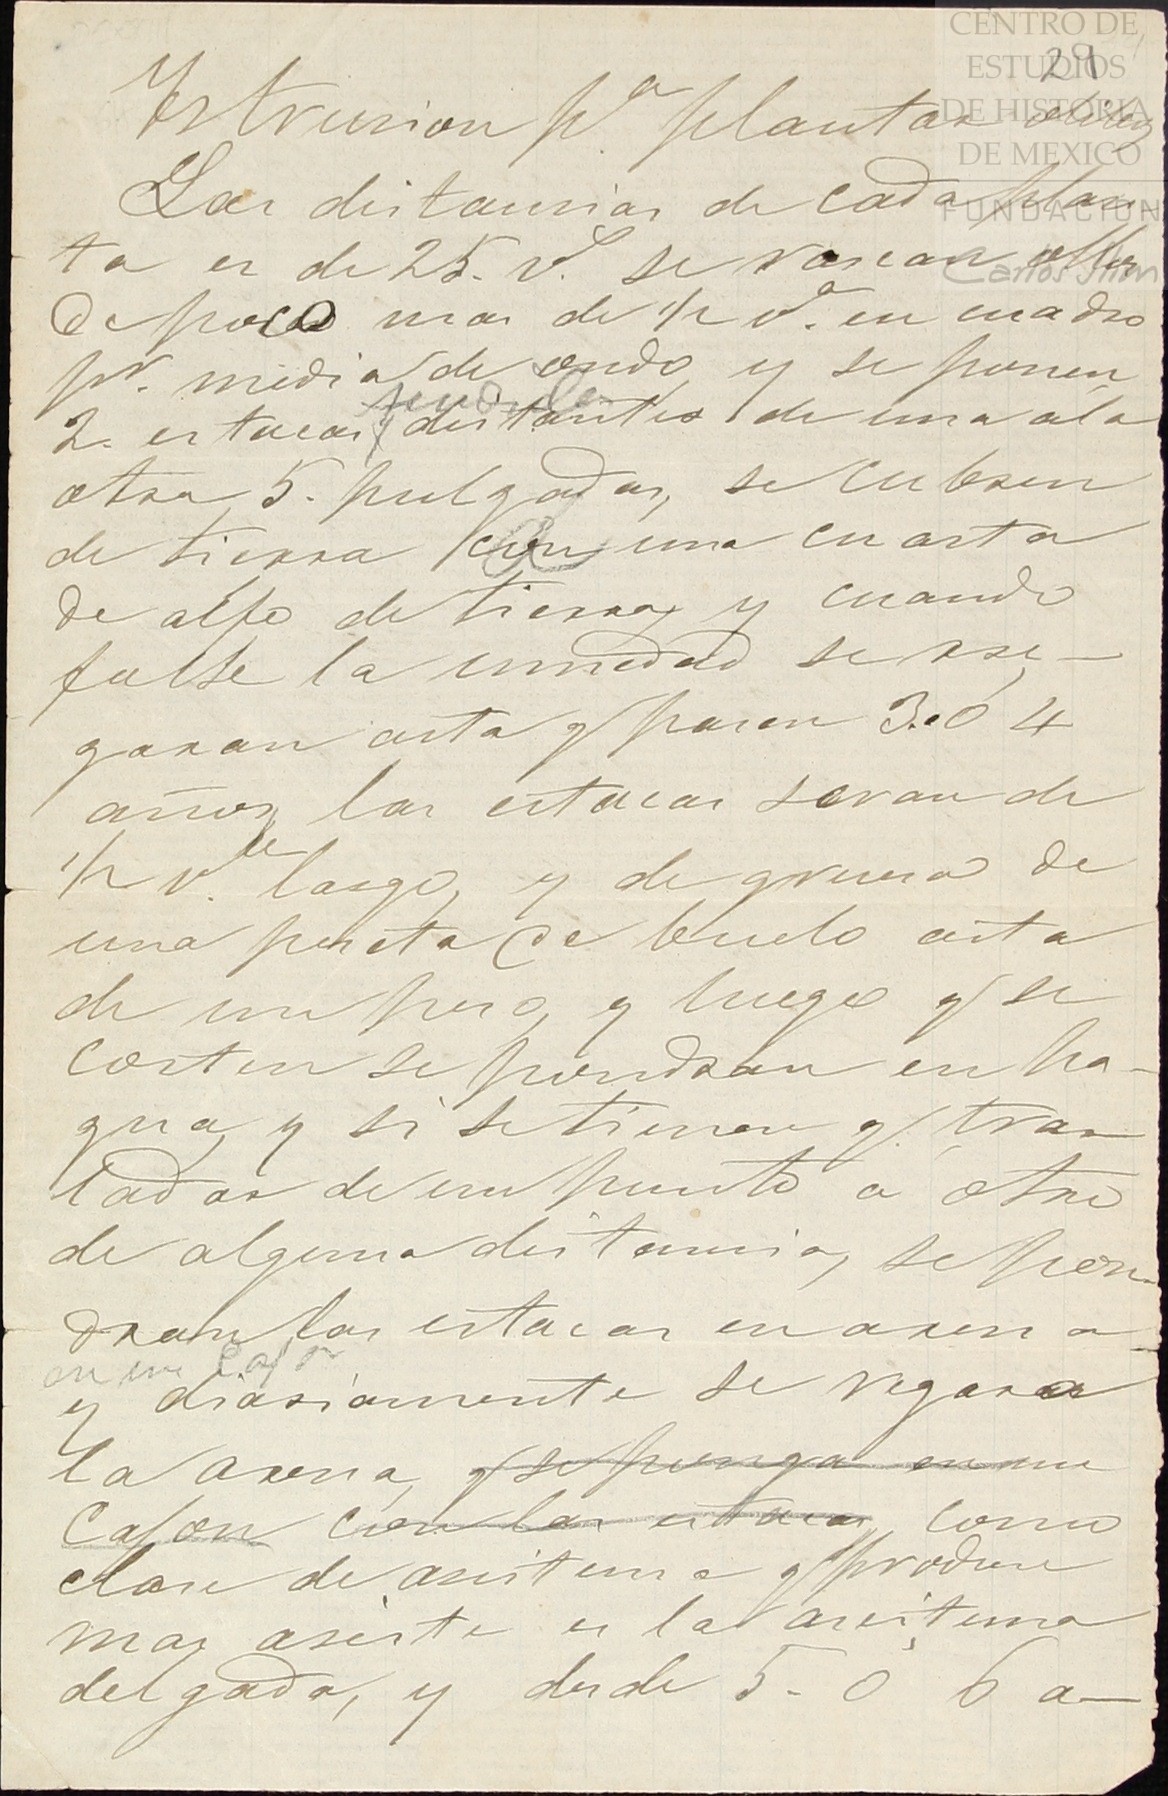 29
CENTRO DE
ESTUDIOS
DE HISTORIA
DE MEXICO
FUNDACIÓN
Carlos Slim
Istrucion pª. plantar olibos
Las distancias de cada plan-
ta es de 25. vs. se vasean ollos
de poco mas de 1/2 vª. en cuadro
pr. media de ondo, y se ponen
2. estacas distantes de una a la
otra 5. pulgadas, se cubren
de tierra con una cuarta
de alto de tierra, y cuando
falte la umedad se rre-
garan asta q pasen 3. o 4
años, las estacas seran de
1/2 v. de largo, y de grueso de
una peseta de buelo asta
de un peso, y luego q se
corten se pondran en ha-
gua, y si se tienen q. tras-
ladar de un punto a otro
de alguna distancia, se pon-
dran las estacas en arena
en un cajon
y diariamente se regara
la arena, q se ponga en un
cajon con las estacas, como
clase de aseituna q produse
mas aseite es la aseituna
delgada, y desde 5. o 6 a-